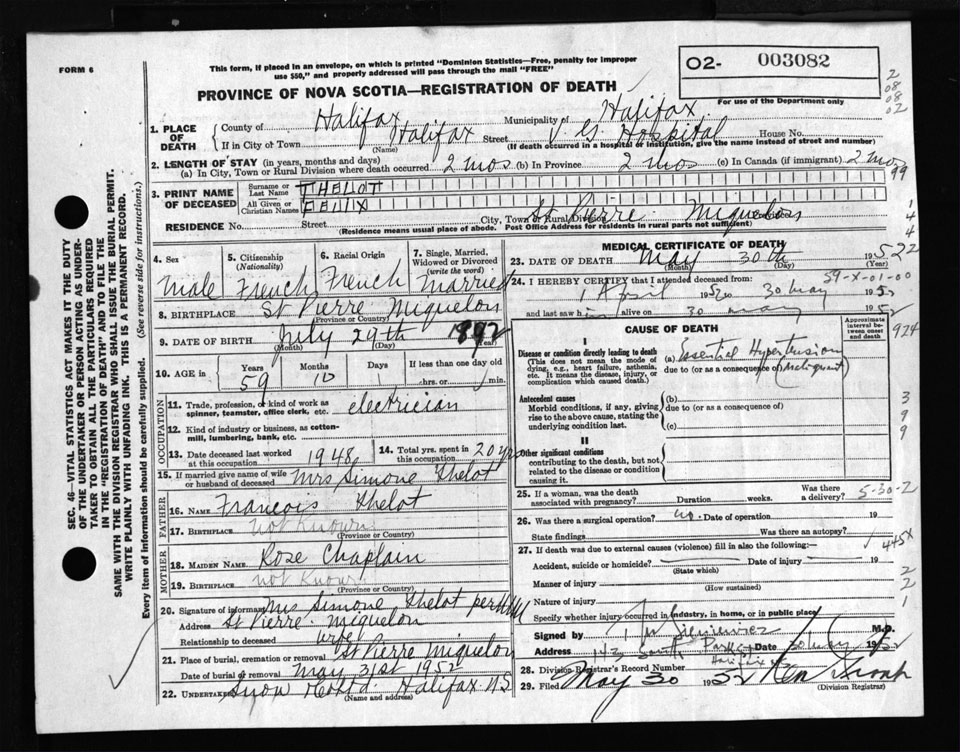 FORM 6
This form, if placed in an envelope, on which is printed "Dominion Statistics—Free, penalty for improper
use $50," and properly addressed will pass through the mail "FREE"
PROVINCE OF NOVA SCOTIA—REGISTRATION OF DEATH
O2- 003082
For use of the Department only
2
08
08
02
1. PLACE OF DEATH
County of Halifax Municipality of Halifax
If in City of Town Halifax Street V. G. Hospital House No.
(Name) (If death occurred in a hospital or institution, give the name instead of street and number)
2. LENGTH OF STAY (in years, months and days)
(a) In City, Town or Rural Division where death occurred 2 mos (b) In Province 2 mos (c) In Canada (if immigrant) 2 mos
99
3. PRINT NAME OF DECEASED
Surname or Last Name THELOT
All Given or Christian Names FELIX
RESIDENCE No. Street City, Town or Rural Division St Pierre Miquelon Province
(Residence means usual place of abode. Post Office Address for residents in rural parts not sufficient)
1
4
4
4. Sex Male
5. Citizenship (Nationality) French
6. Racial Origin French
7. Single, Married, Widowed or Divorced (write the word) Married
8. BIRTHPLACE St Pierre Miquelon
(Province or Country)
9. DATE OF BIRTH July 29th 1892
(Month) (Day) (Year)
10. AGE in Years 59 Months 10 Days If less than one day old hrs. or min.
OCCUPATION
11. Trade, profession, or kind of work as spinner, teamster, office clerk, etc. electrician
12. Kind of industry or business, as cotton-mill, lumbering, bank, etc.
13. Date deceased last worked at this occupation 1948
14. Total yrs. spent in this occupation 20 yrs
15. If married give name of wife or husband of deceased Mrs Simone Thelot
FATHER
16. Name Francois Thelot
17. Birthplace not Known
(Province or Country)
MOTHER
18. Maiden Name Rose Chaplain
19. Birthplace not Known
(Province or Country)
20. Signature of informant Mrs Simone Thelot per
Address St Pierre Miquelon
Relationship to deceased wife
21. Place of burial, cremation or removal St Pierre Miquelon
Date of burial or removal May 31st 1952
22. Undertaker Snow & Co Ltd. Halifax N.S
(Name and address)
MEDICAL CERTIFICATE OF DEATH
23. DATE OF DEATH May 30th 1952
(Month) (Day) (Year)
2
59-X-01-00
24. I HEREBY CERTIFY that I attended deceased from:
1 April 1952 to 30 May 1952
and last saw him alive on 30 May 1952
CAUSE OF DEATH
Approximate interval between onset and death
924
I
Disease or condition directly leading to death
(This does not mean the mode of dying, e.g., heart failure, asthenia, etc. It means the disease, injury, or complication which caused death.)
(a) Essential Hypertension
due to (or as a consequence of) (Malignant)
Antecedent causes
Morbid conditions, if any, giving rise to the above cause, stating the underlying condition last.
(b)
due to (or as a consequence of)
(c)
3
9
9
II
Other significant conditions
contributing to the death, but not related to the disease or condition causing it.
25. If a woman, was the death associated with pregnancy? Duration weeks. Was there a delivery?
5-30-2
26. Was there a surgical operation? no. Date of operation 19
State findings Was there an autopsy?
445X
27. If death was due to external causes (violence) fill in also the following:—
Accident, suicide or homicide? Date of injury 19
(State which)
Manner of injury
(How sustained)
Nature of injury
Specify whether injury occurred in industry, in home, or in public place
2
2
1
Signed by M.D.
Address 142 South Park St Halifax 30 May 1952
28. Division Registrar's Record Number
29. Filed May 30 1952
(Division Registrar)
SEC. 46—VITAL STATISTICS ACT MAKES IT THE DUTY
OF THE UNDERTAKER OR PERSON ACTING AS UNDER-
TAKER TO OBTAIN ALL THE PARTICULARS REQUIRED
IN THE "REGISTRATION OF DEATH" AND TO FILE THE
SAME WITH THE DIVISION REGISTRAR WHO SHALL ISSUE THE BURIAL PERMIT.
WRITE PLAINLY WITH UNFADING INK. THIS IS A PERMANENT RECORD.
Every item of information should be carefully supplied. (See reverse side for instructions.)